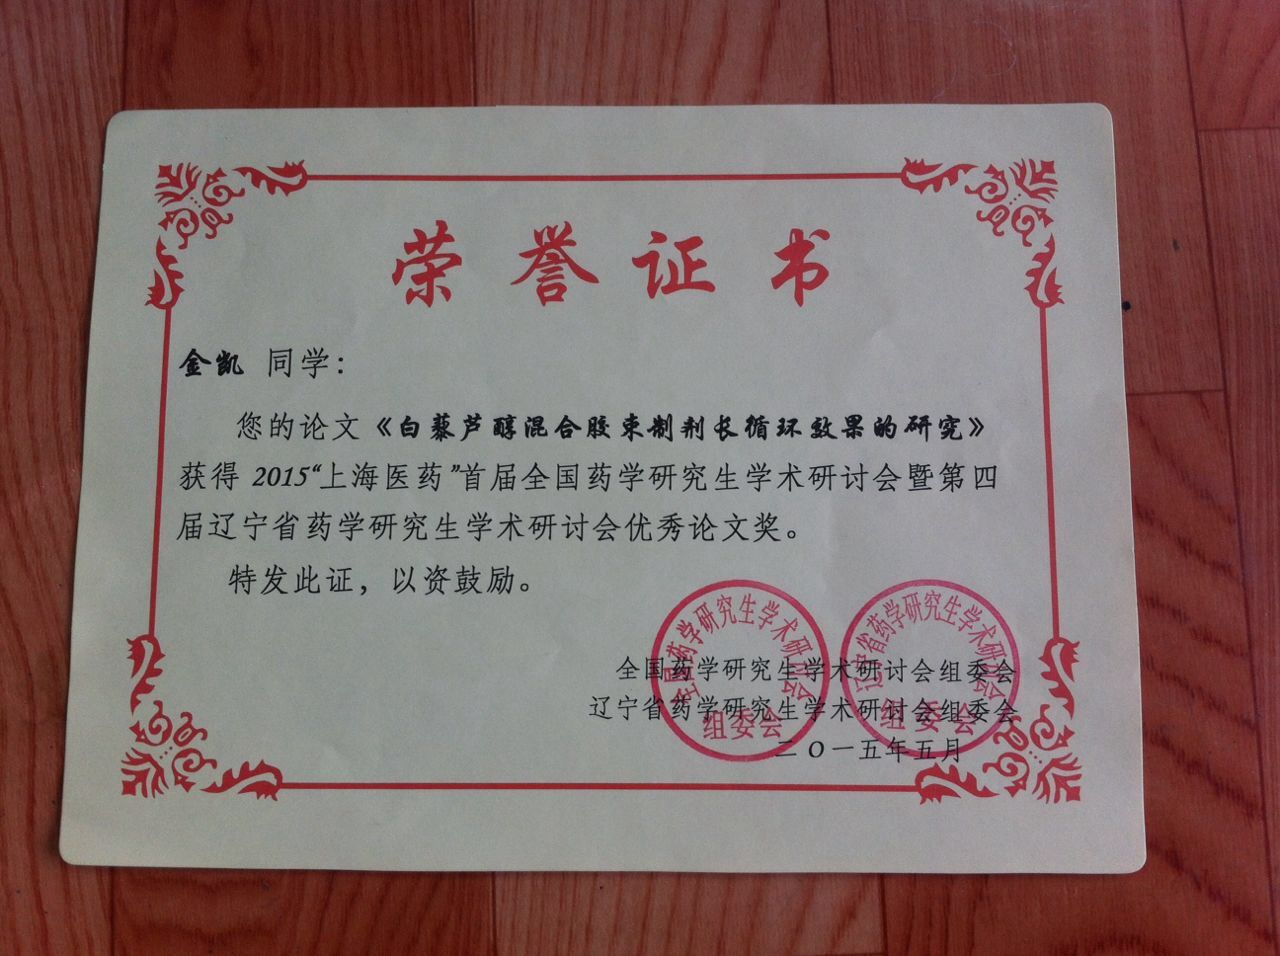 荣誉证书
金凯 同学：
您的论文《白藜芦醇混合胶束制剂长循环效果的研究》
获得 2015“上海医药”首届全国药学研究生学术研讨会暨第四
届辽宁省药学研究生学术研讨会优秀论文奖。
特发此证，以资鼓励。
全国药学研究生学术研讨会组委会
辽宁省药学研究生学术研讨会组委会
二O一五年五月
全国药学研究生学术研讨会
组委会
辽宁省药学研究生学术研讨会
组委会